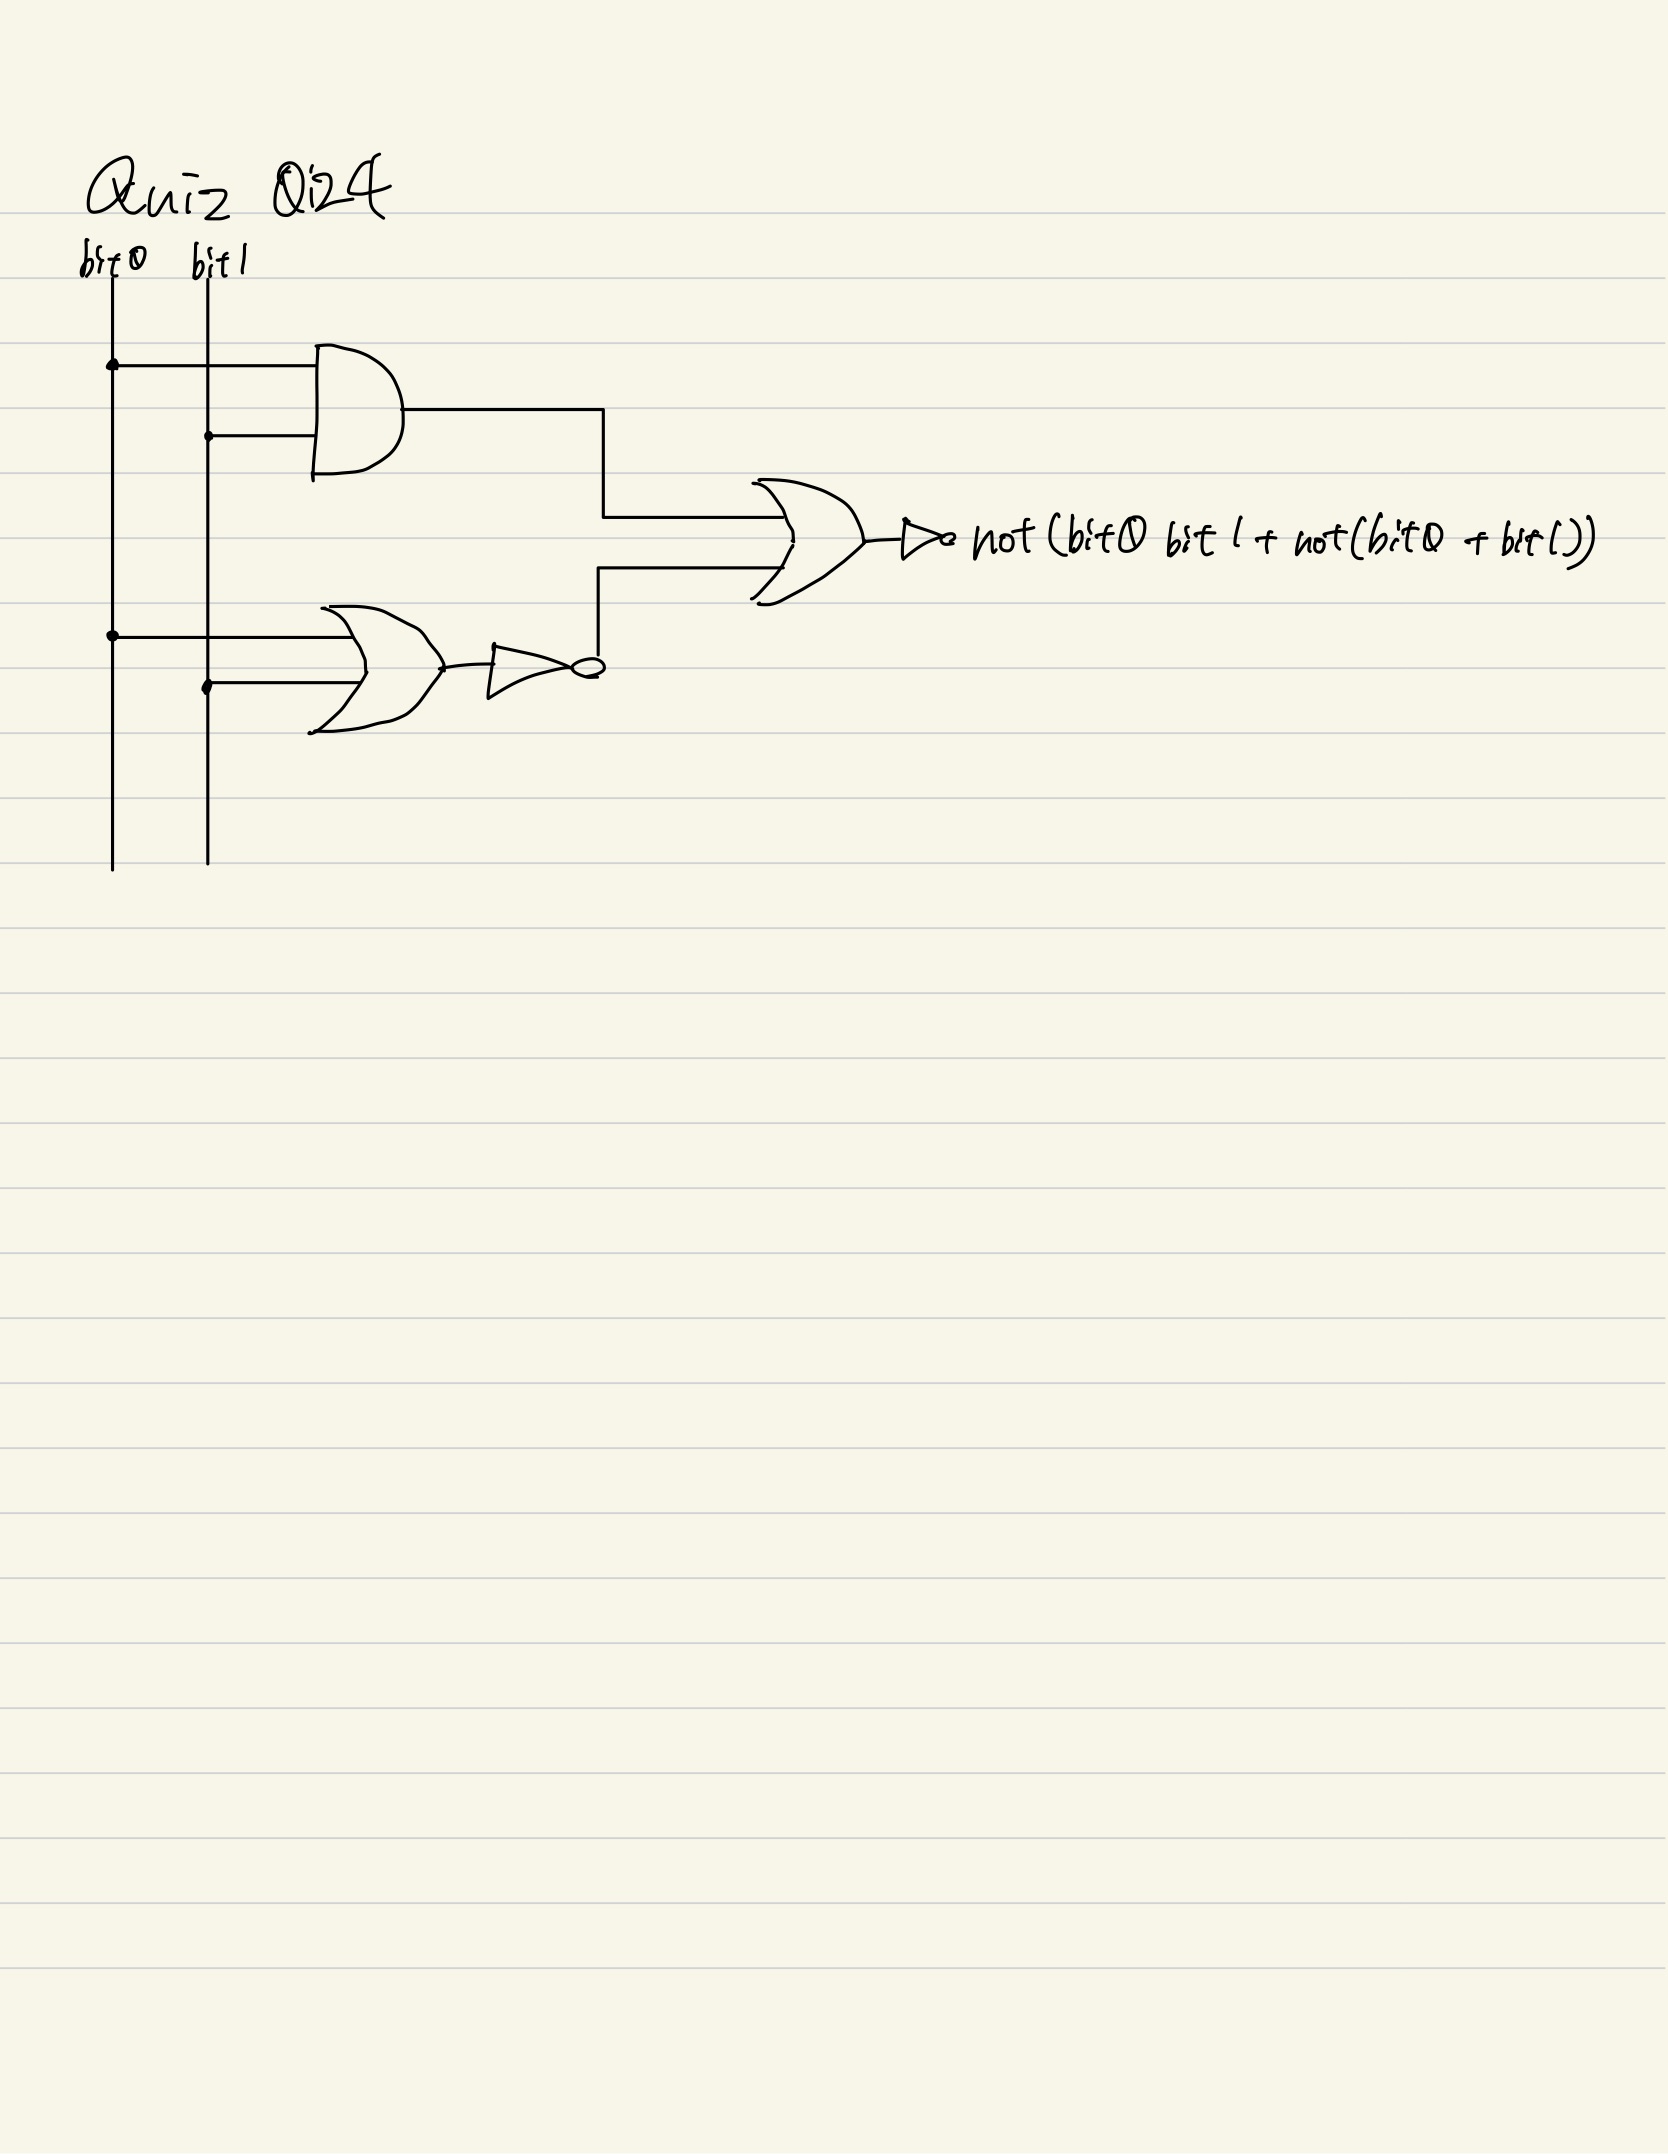 Quiz Q124
bit0 bit1
not(bit0 bit1 + not(bit0 + bit1))